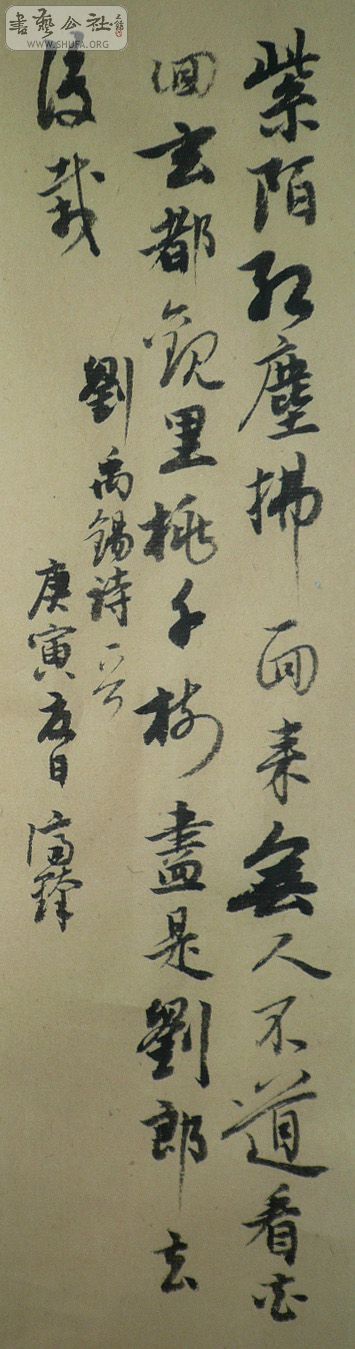 紫陌红塵拂面来無人不道看花
回玄都觀里桃千树盡是劉郎去
後栽
劉禹錫詩一首
庚寅夏日
書藝公社
WWW.SHUFA.ORG